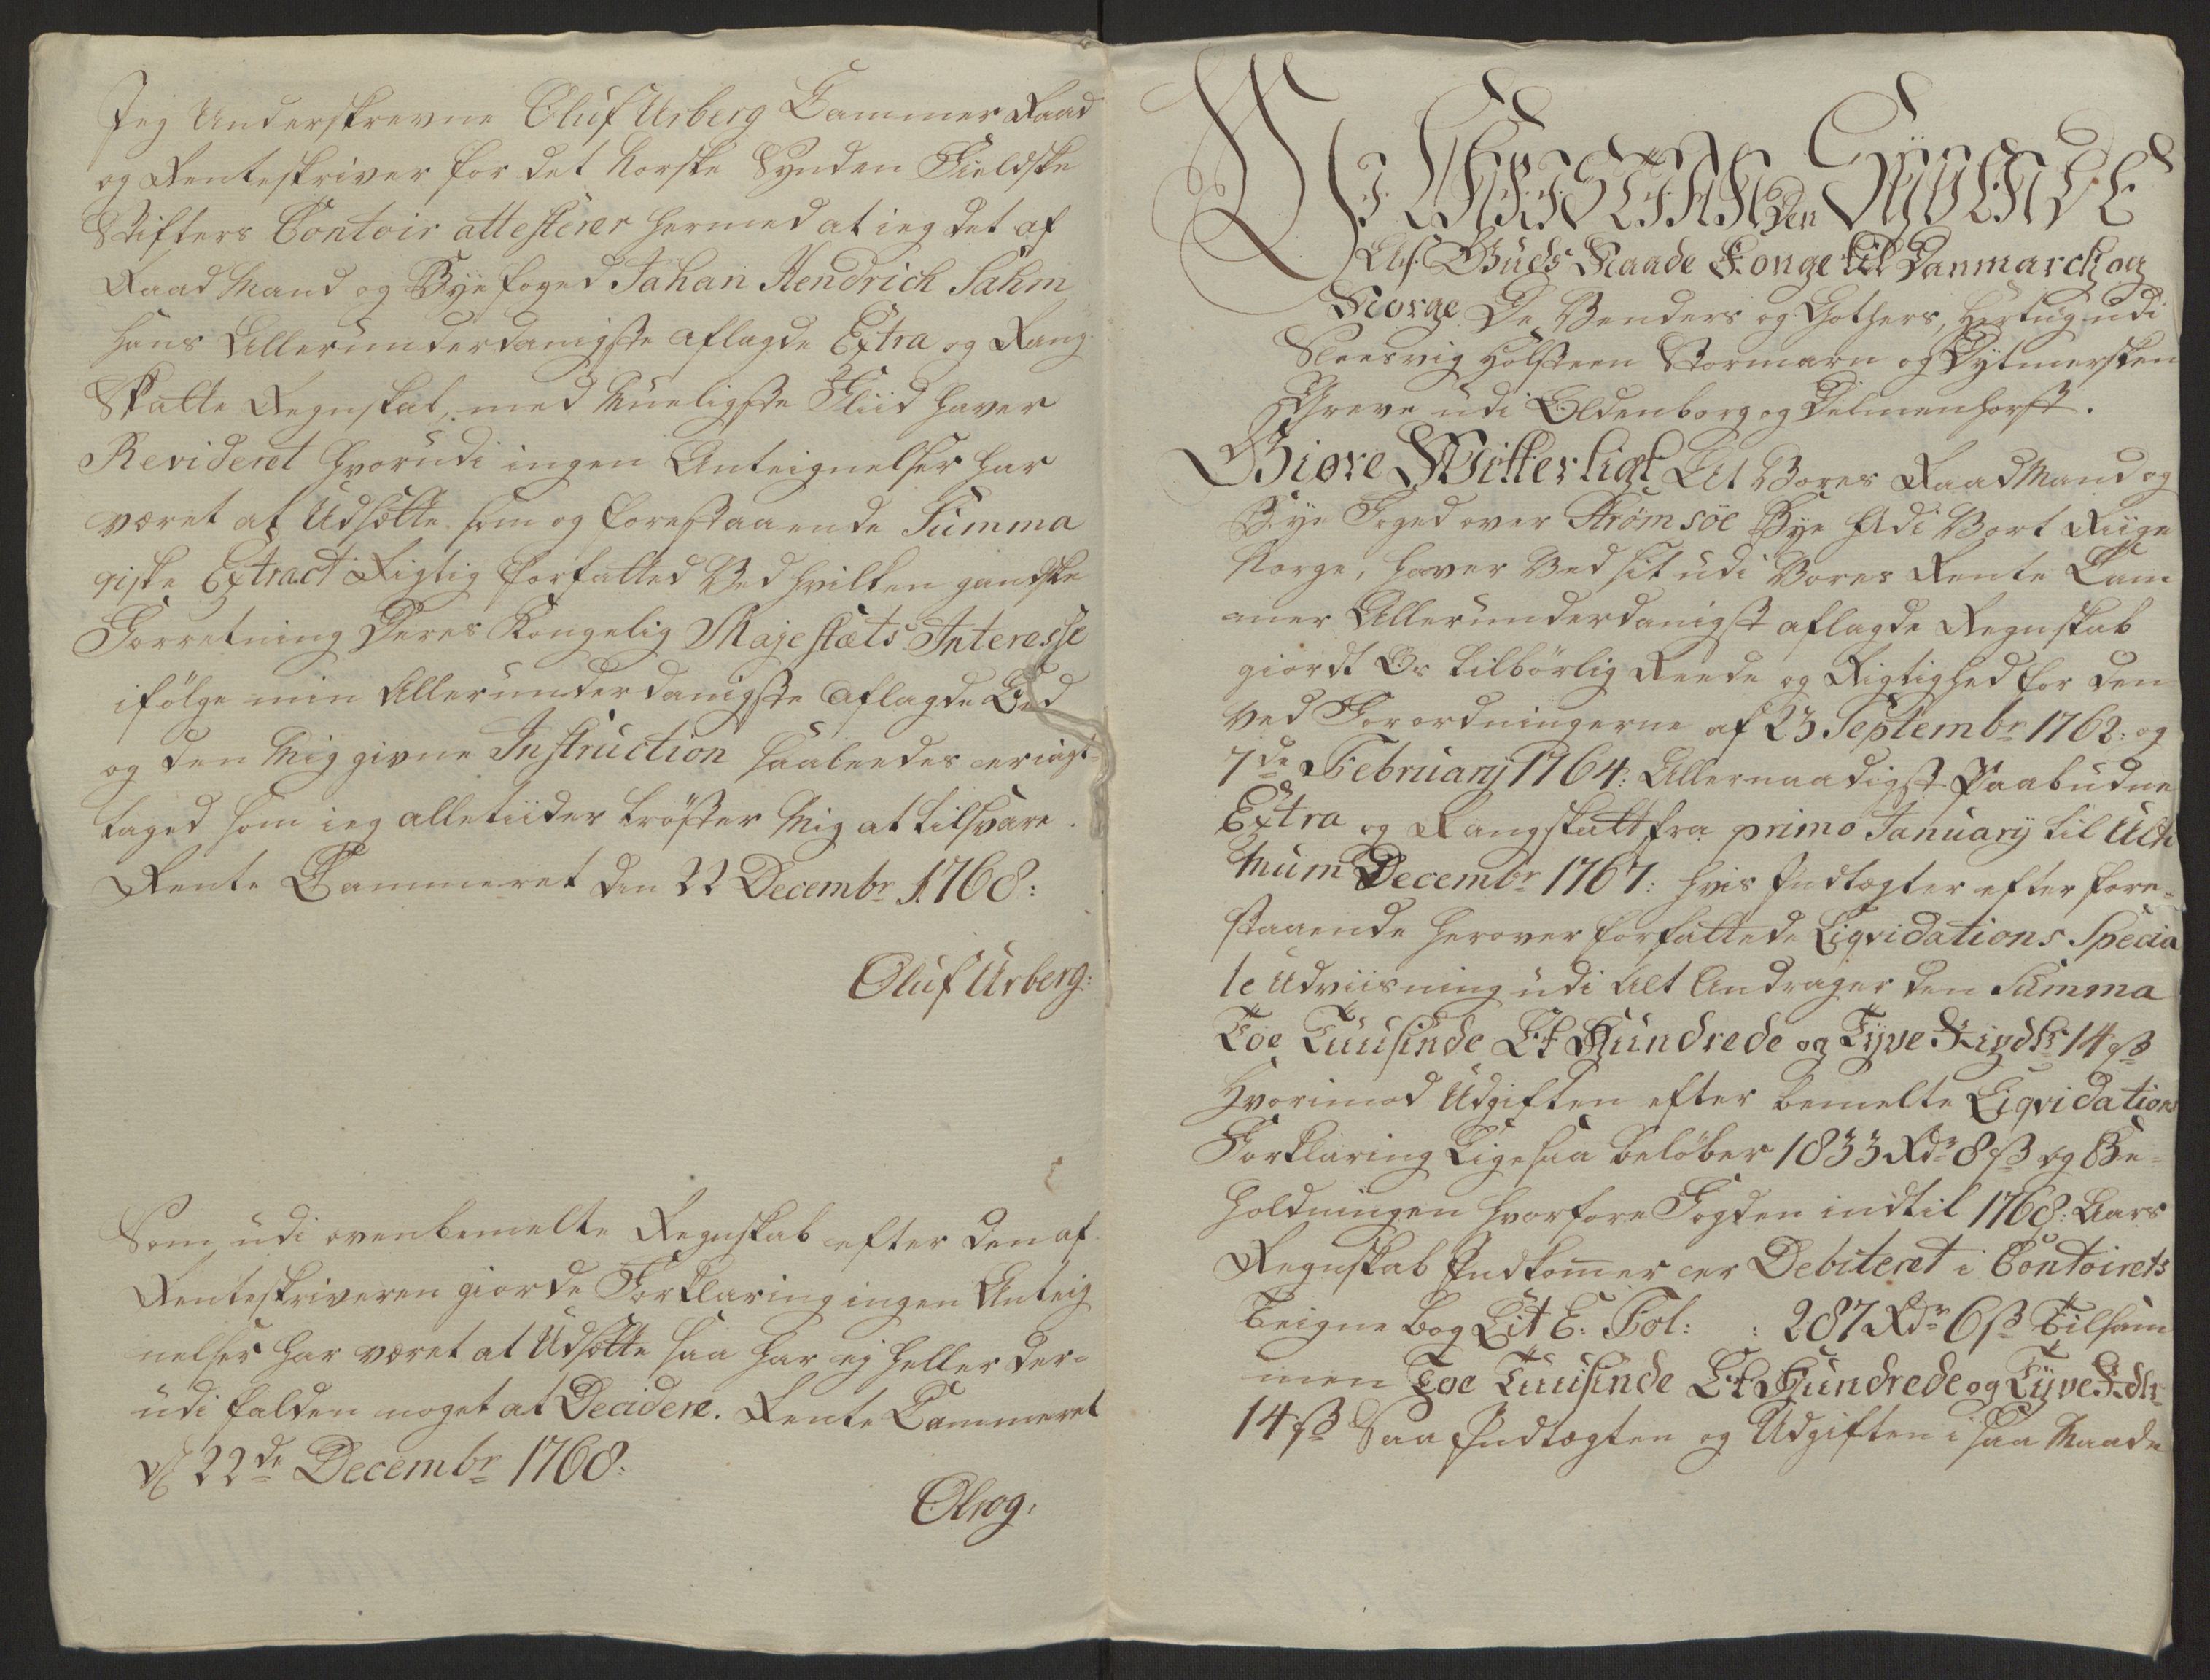 Jeg Underskrevne Oluf Urberg Cammer Raad
og Renteskriver for det Norske Synden Fieldske
Stifters Contoir attesterer hermed at ieg det af
Raad Mand og Bye foged Johan Hendrich Sahm
hans Allerunderdanigste aflagde Extra og Rang
Skatte Regnskab, med Mueligste Fliid haver
Revideret hvorudi ingen Anteignelser har
været at Udsætte som og forestaaende Summa
riske Extract Rigtig forfatted Ved hvilken gandske
Forretning Deres Kongelig Majestæts Interesse
ifölge min Allerunderdanigste aflagde Eed
og den Mig givne Instruction saaleedes er iagt-
taged som ieg alletiider tröster Mig at tilsvare.
Rente Cammeret den 22 Decembr 1768:
Oluf Urberg:
Som udi ovenbemelte Regnskab efter den af
Renteskriveren giorde Forklaring ingen Anteig
nelser har været at Udsætte saa har ej heller der-
udi falden noget at Decidere. Rente Cammeret
d 22de Decembr 1768:
Olrog:
Vi CHRISTIAN Den SYVENDE
Af Guds Naade Konge til Danmarck og
Norge De Venders og Gothers, Hertug udi
Sleesvig Holsteen Stormarn og Dytmersken
Greve udi Oldenborg og Delmenhorst.
Giöre Witterligt At Vores Raad Mand og
Bye Foged over Strømsöe Bye Udi Vort Riige
Norge, haver Ved sit udi Vores Rente Cam
mer Allerunderdanigst aflagde Regnskab
giordt Os tilbörlig Reede og Rigtighed for den
Ved Forordningerne af 23 Septembr 1762: og
7de February 1764: Allernaadigst Paabudne
Extra og Rangskatt fra primo January til Ulti
mum Decembr 1767: hvis Indtægter efter fore-
staaende herover forfattede Liqvidations Specia
le Udviisning udi Alt Andrager den Summa
Toe Tuusinde Et Hundrede og Tyve Rigdlr 14 ß
Hvorimod Udgiften efter bemelte Liqvidations
Forklaring Ligesaa belöber 1833 Rdr 8 ß og Be-
holdningen hvorfore Fogden indtil 1768: Aars
Regnskab Indkommer er Debiteret i Contoirets
Teigne bog Lit E: Fol: : 287 Rdr 6 ß Tilsam
men Toe Tuusinde Et Hundrede og Tyve Rdlr
14 ß Saa Indtægten og Udgiften i saa Maade